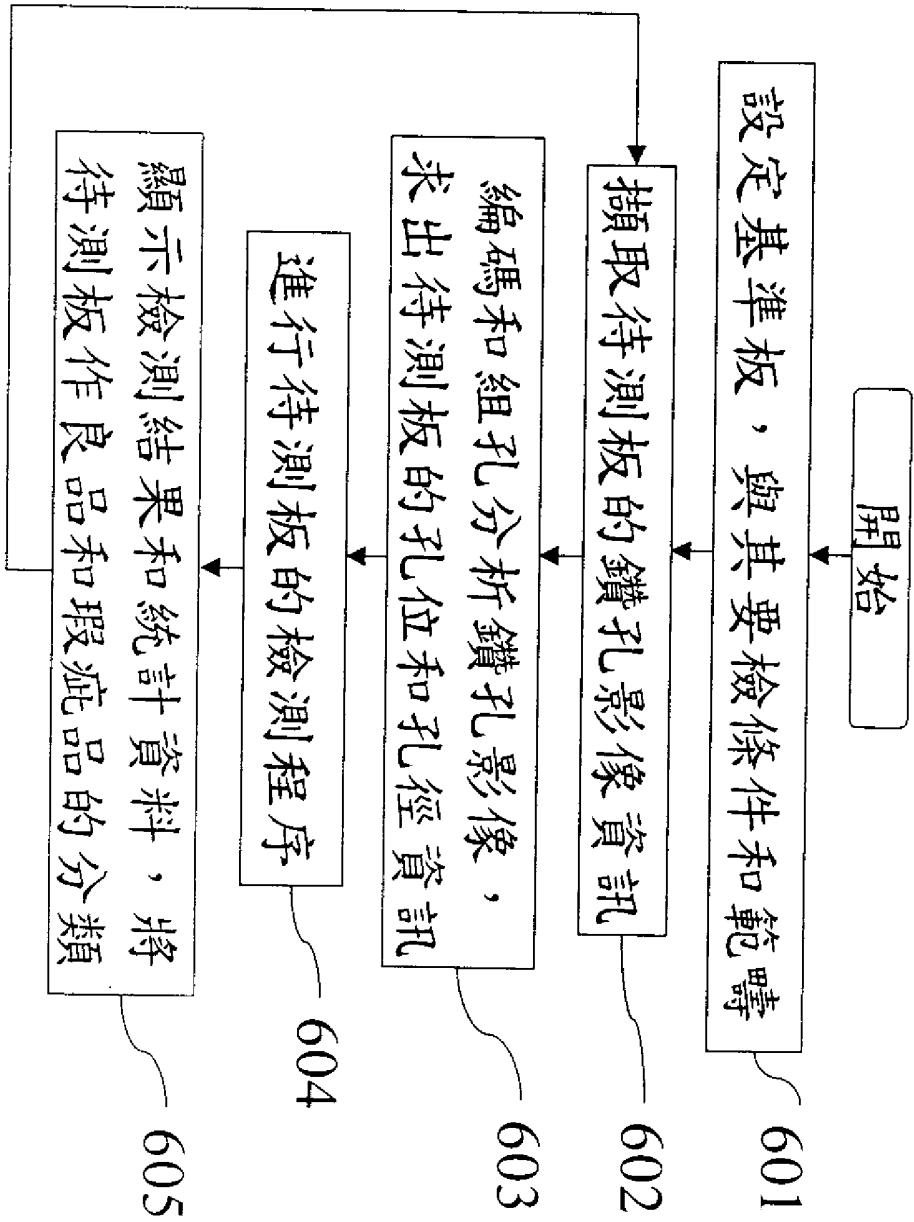 開始
設定基準板，與其要檢條件和範疇
601
擷取待測板的鑽孔影像資訊
602
編碼和組孔分析鑽孔影像，
求出待測板的孔位和孔徑資訊
603
進行待測板的檢測程序
604
顯示檢測結果和統計資料，將
待測板作良品和瑕疵品的分類
605